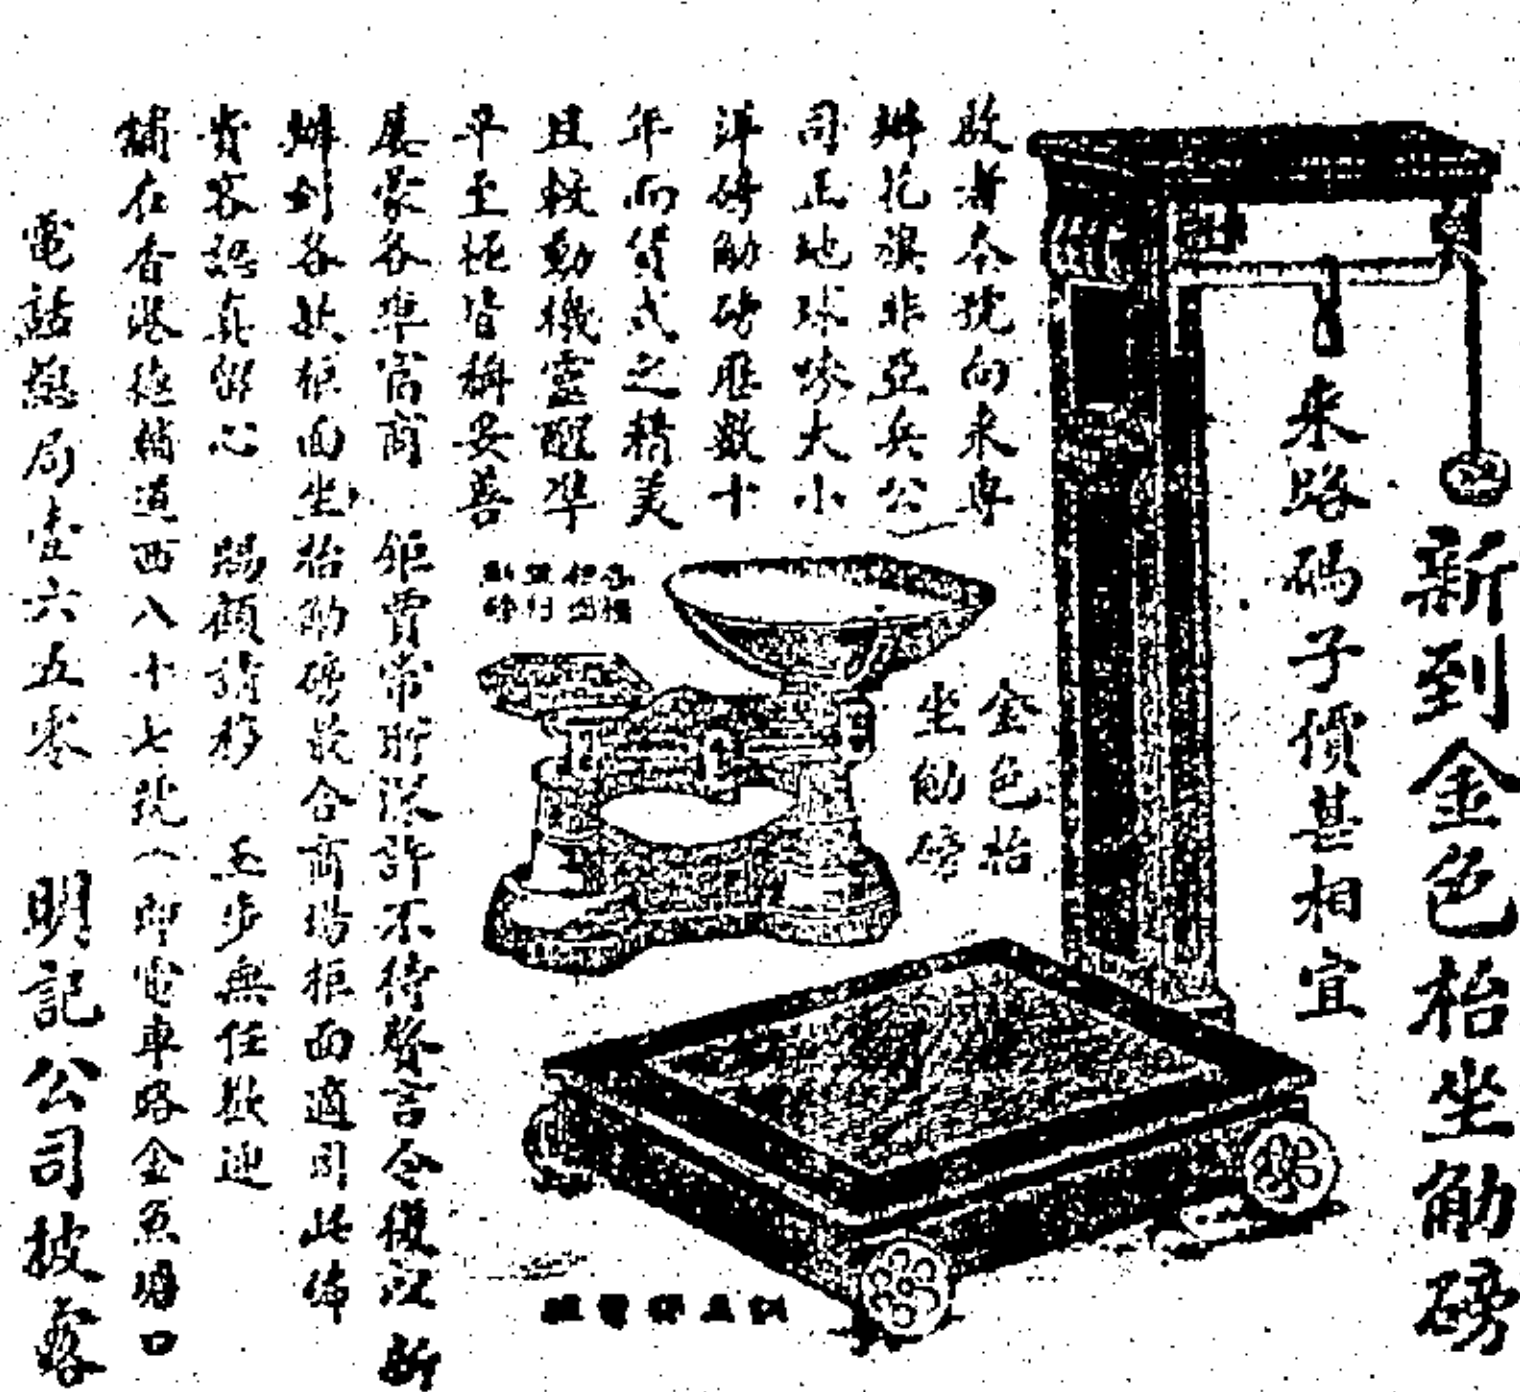 新到金色枱坐觔磅
来路碼子價甚相宜
啟者本號向来專
辦花旗非亞兵公
司正地球嘜大小
洋磅觔磅歷數十
年而貨式之精美
且較動機靈醒準
平至極皆稱妥善
屢蒙各埠富商 鉅賈常時深許不待贅言今復以新
辦到各款柜面坐枱觔磅最合商場柜面適用此佈
貴客認真留心 賜顧請移 玉步無任歡迎
舖在香港德輔道西八十七號（即電車路金魚塘口
電話總局壹六五零 明記公司披露
金色枱
坐觔磅